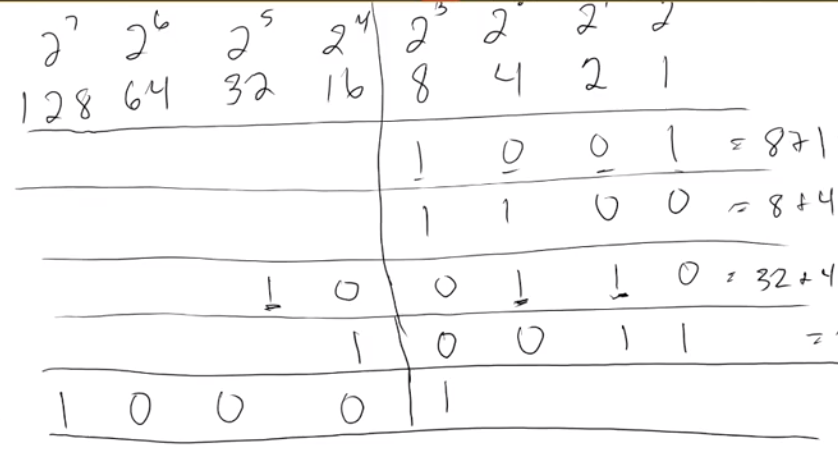 2⁷ 2⁶ 2⁵ 2⁴ 2³ 2 2 2
128 64 32 16 8 4 2 1
1 0 0 1 = 8+1
1 1 0 0 = 8+4
1 0 0 1 1 0 = 32+4
1 0 0 1 1 =
1 0 0 0 1